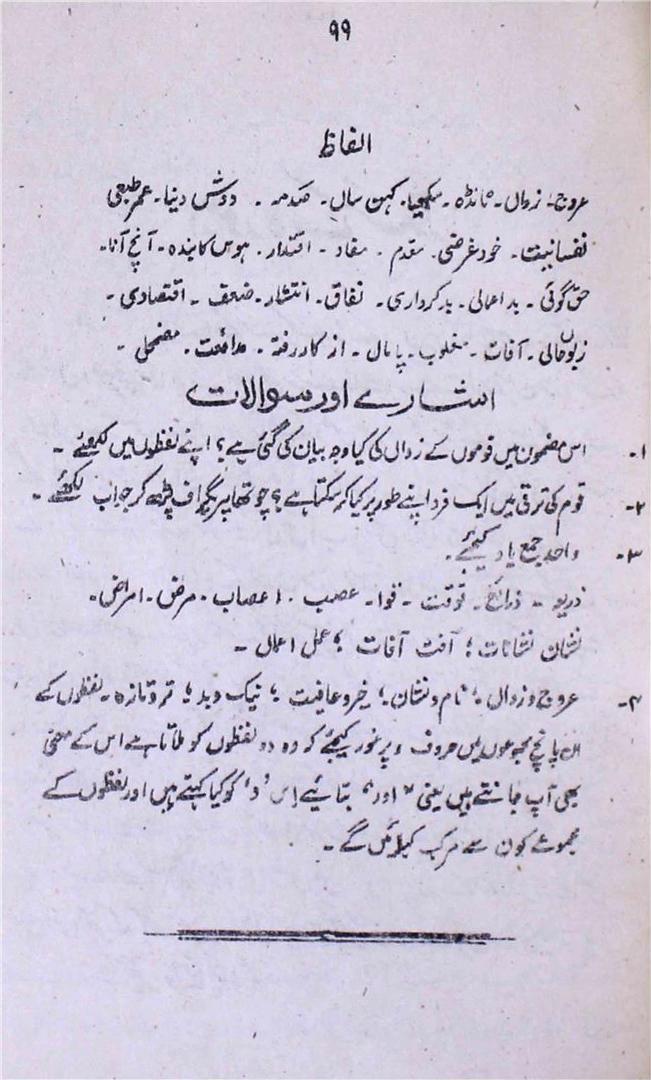 ۹۹
الفاظ
عروج۔ زوال۔ مانڈہ۔ سکھیا۔ کہن سال۔ صدمہ ۔ دوش دینا۔ عمر طبعی
نفسانیت۔ خود غرضی۔ مقدم ۔ مفاد ۔ اقتدار۔ ہوس کا بندہ۔ آنچ آنا۔
حق گوئی ۔ بد اعمالی ۔ بد کرداری ۔ نفاق ۔ انتشار۔ ضعف ۔ اقتصادی ۔
زبوں حالی ۔ آفات ۔ مغلوب ۔ پامال ۔ از کار رفتہ ۔ مدافعت ۔ مضمحل ۔
اشارے اور سوالات
۱۔ اس مضمون میں قوموں کے زوال کی کیا وجہ بیان کی گئی ہے؟ اپنے لفظوں میں لکھئے ۔
۲۔ قوم کی ترقی میں ایک فرد اپنے طور پر کیا کر سکتا ہے؟ چوتھا پیراگراف پڑھ کر جواب لکھئے ۔
۳۔ واحد جمع یاد کیجئے ۔
ذریعہ ۔ ذرائع ۔ قوت ۔ قوا۔ عصب ۔ اعصاب ۔ مرض ۔ امراض۔
نشان نشانات ؛ آفت آفات ؛ عمل اعمال ۔
۴۔ عروج و زوال ؛ نام و نشان ؛ خیر و عافیت ؛ نیک و بد ؛ تر و تازہ ۔ لفظوں کے
ان پانچ مجموعوں میں حروف و پر غور کیجئے کہ وہ دو لفظوں کو ملاتا ہے اس کے معنی
بھی آپ جانتے ہیں یعنی "اور" بتائیے اس 'و' کو کیا کہتے ہیں اور لفظوں کے
مجموعے کون سے مرکب کہلائیں گے ۔